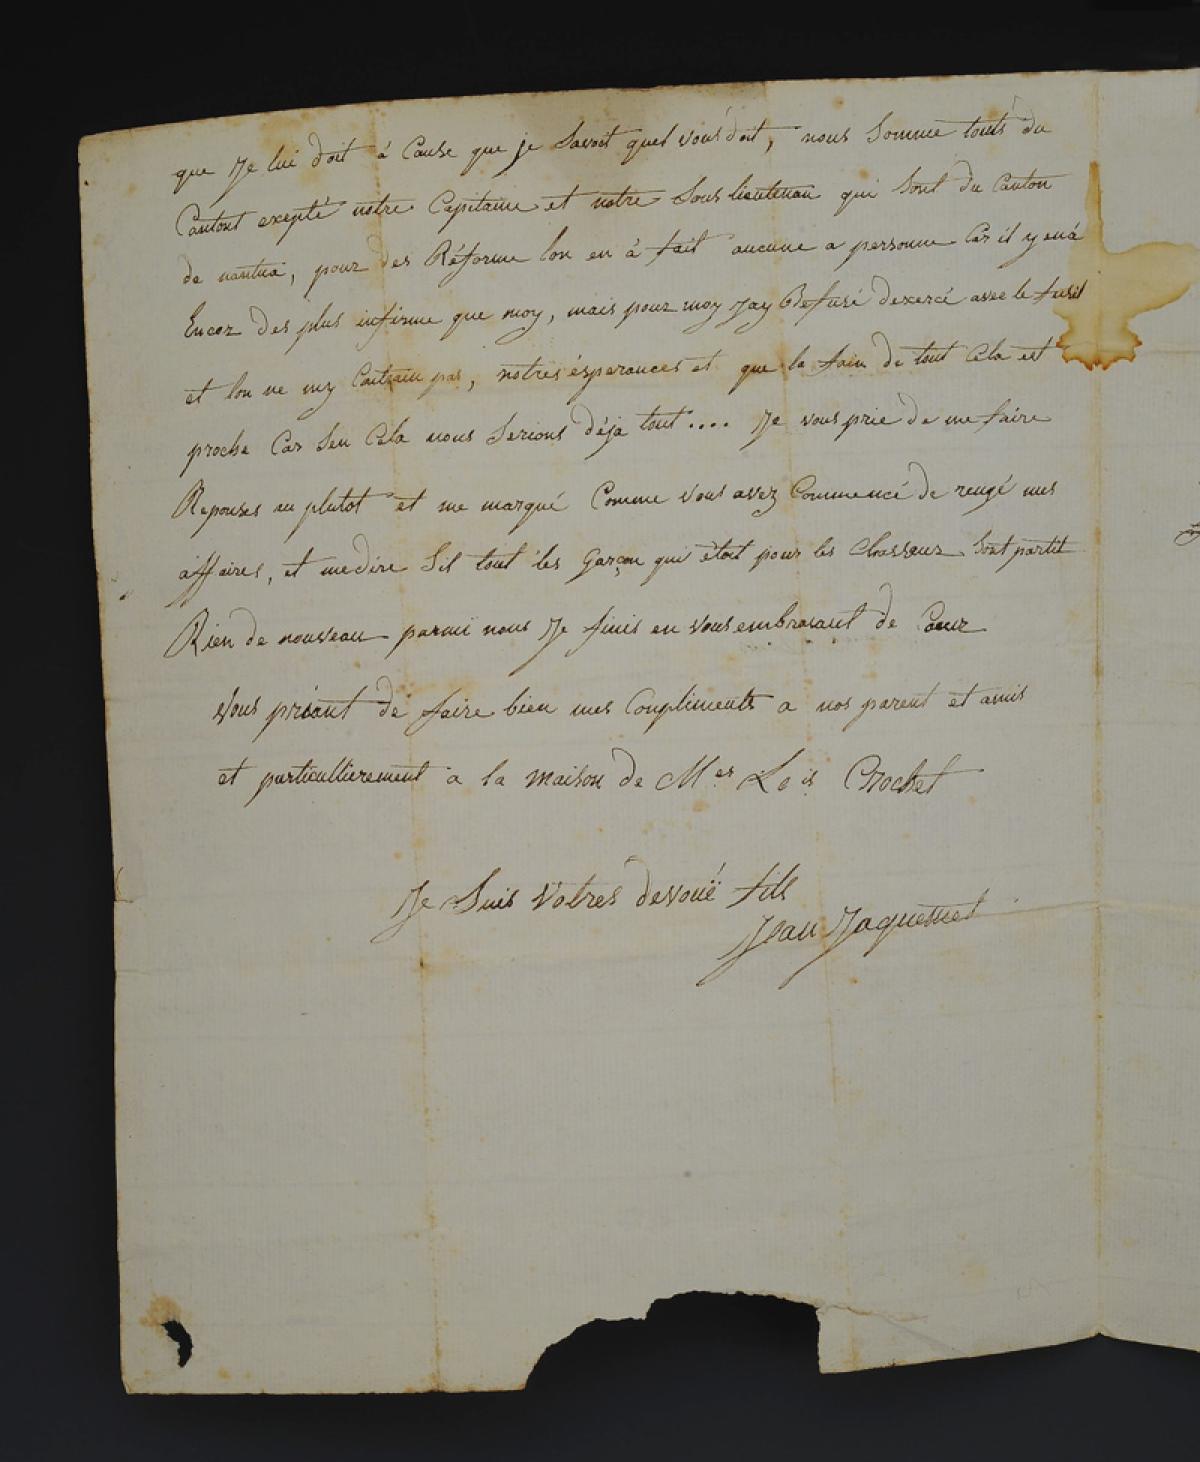 que Je lui doit à Cause que je Savoit quel vous doit, nous Somme touts du
Cantont exepté notre Capitaine et notre Sous lieutenan qui Sont du Canton
de nantua, pour des Réforme lon en à fait aucune a personne Car il y en à
Encor des plus infirme que moy, mais pour moy Jay Refusé dexercé avec le fusil
et lon ne my Contrain pas, notres ésperances et que la fain de tout Cela est
proche Car Sen Cela nous Serions déja tout .... Je vous prie de me faire
Reponses au plutot et me marqué Comme vous avez Commencé de rengé mes
affaires, et me dire Sil tout les Garçon qui étoit pour les Chasseur Sont partit
Rien de nouveau parmi nous Je finis en vous embrasant de Coeur
Vous priant de faire bien mes Compliments a nos parent et amis
et particullierement a la maison de Mer Lois Crochet
Je Suis Votres devoué fils
Jean Jaquemet